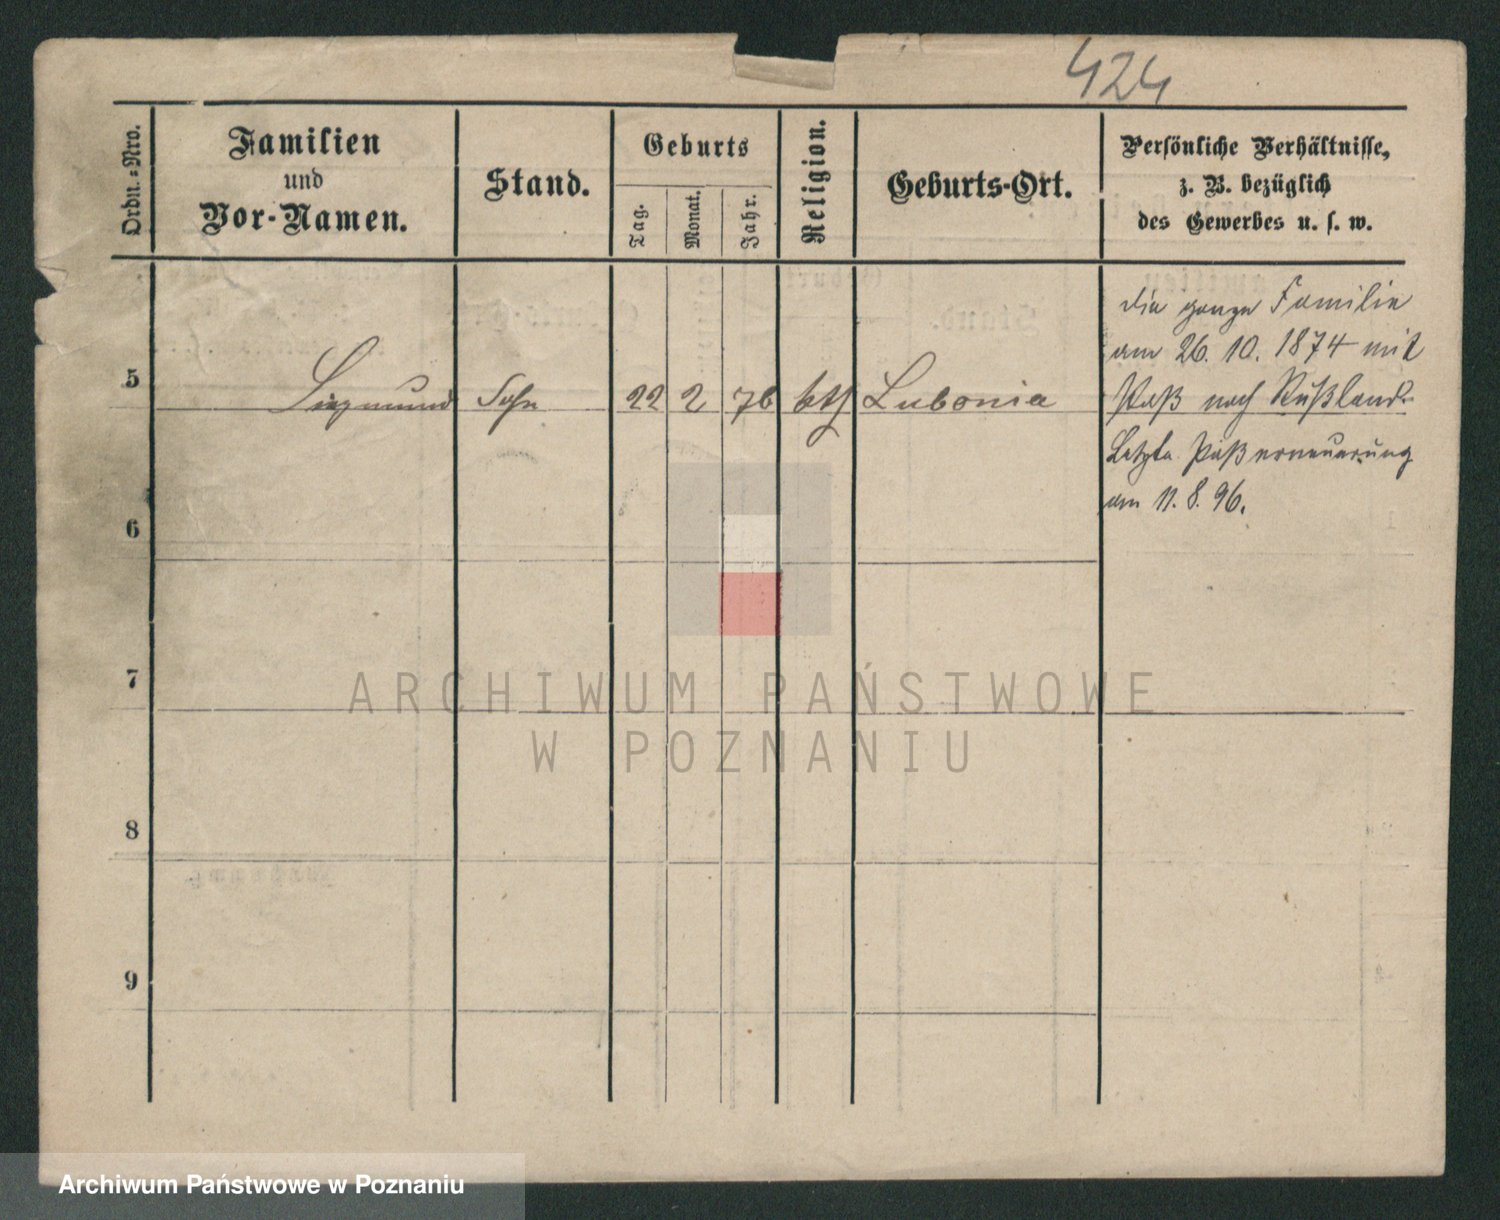 424
Ordn.-Nro.
Familien
und
Vor-Namen.
Stand.
Geburts
Tag.
Monat.
Jahr.
Religion.
Geburts-Ort.
Persönliche Verhältnisse,
z. B. bezüglich
des Gewerbes u. s. w.
5 Siegmund Sohn 22 2 76 kth Lubonia
die ganze Familie
am 26. 10. 1874 mit
Paß nach Rußland.
Letzte Paßerneuerung
am 11. 8. 96.
6
7
8
9
ARCHIWUM PAŃSTWOWE
W POZNANIU
Archiwum Państwowe w Poznaniu